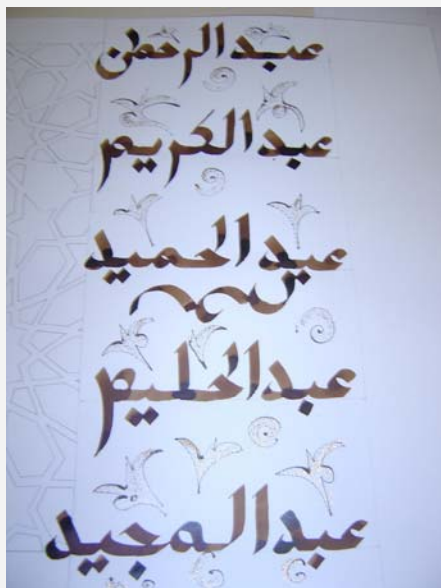 عبد الرحمن
عبد الكريم
عبد الحميد
عبد الحليم
عبد المجيد